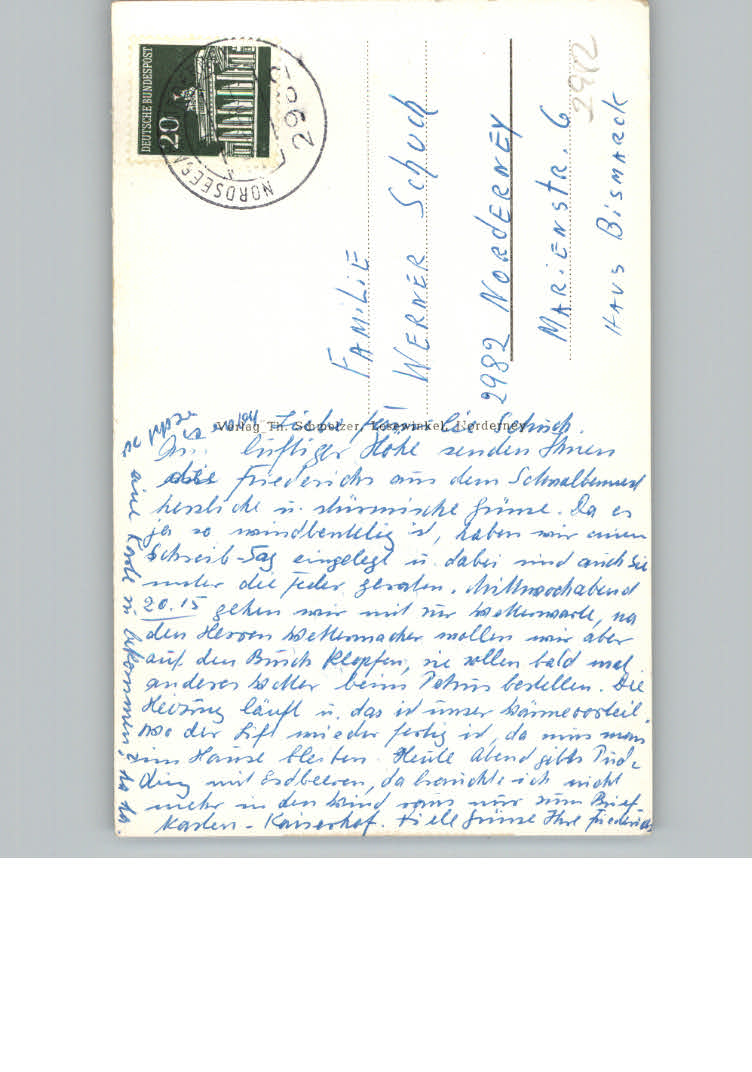 DEUTSCHE BUNDESPOST
20
2982
NORDSEE
2982
FAMILIE
WERNER SCHUCH
2982 NORDERNEY
MARIENSTR. 6
HAUS BISMARCK
Verlag Th. Schmelzer, Losewinkel, Norderney
Liebe Familie Schuch.
Aus luftiger Höhe senden Ihnen
die Friederichs aus dem Schwalbennest
herzliche u. stürmische Grüsse. Da es
ja so windbeutelig ist, haben wir einen
Schreib-Tag eingelegt u. dabei sind auch Sie
unter die Feder geraten. Mittwochabend
20.15 gehen wir mit zur Wetterwarte, na
den Herren Wettermacher wollen wir aber
auf den Busch klopfen, sie sollen bald mal
anderes Wetter beim Petrus bestellen. Die
Heizung läuft u. das ist unser Wärmevorteil,
wo der Lift wieder fertig ist, da muss man
im Hause bleiben. Heute Abend gibts Pud-
ding mit Erdbeeren, da brauchte ich nicht
mehr in den Wind raus nur zum Brief
kasten - Kaiserhof. Viele Grüsse Ihre Friederichs
eine Karte zu bekommen, ha ha